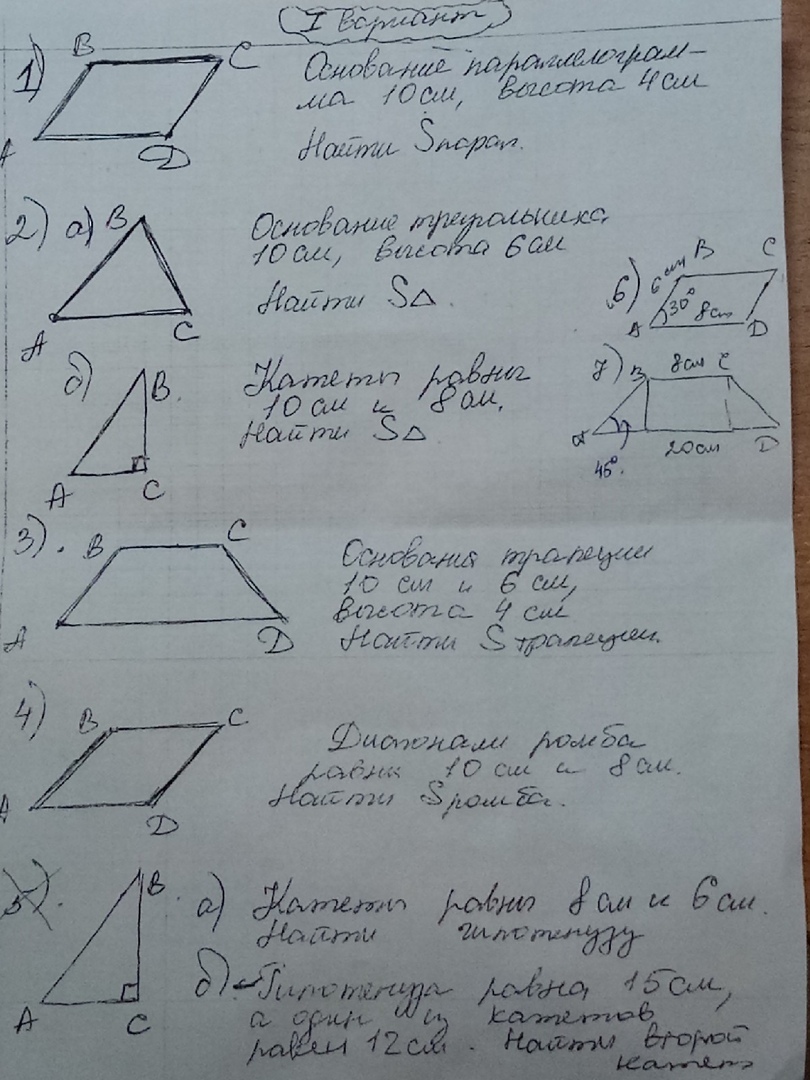 I вариант
1)
B
C
A
D
Основание параллелограм-
ма 10 см, высота 4 см
Найти Sпарал.
2) а)
B
A
C
Основание треугольника
10 см, высота 6 см
Найти S△.
б)
B
A
C
Катеты равны
10 см и 8 см.
Найти S△
6)
B
C
6 см
30°
8 см
A
D
7)
B
8 см
C
20 см
D
45°.
3).
B
C
A
D
Основания трапеции
10 см и 6 см,
высота 4 см
Найти S трапеции.
4)
B
C
A
D
Диагонали ромба
равны 10 см и 8 см.
Найти S ромба.
5).
B
A
C
а) Катеты равны 8 см и 6 см.
Найти гипотенузу
б) Гипотенуза равна 15 см,
а один из катетов
равен 12 см. Найти второй
катет